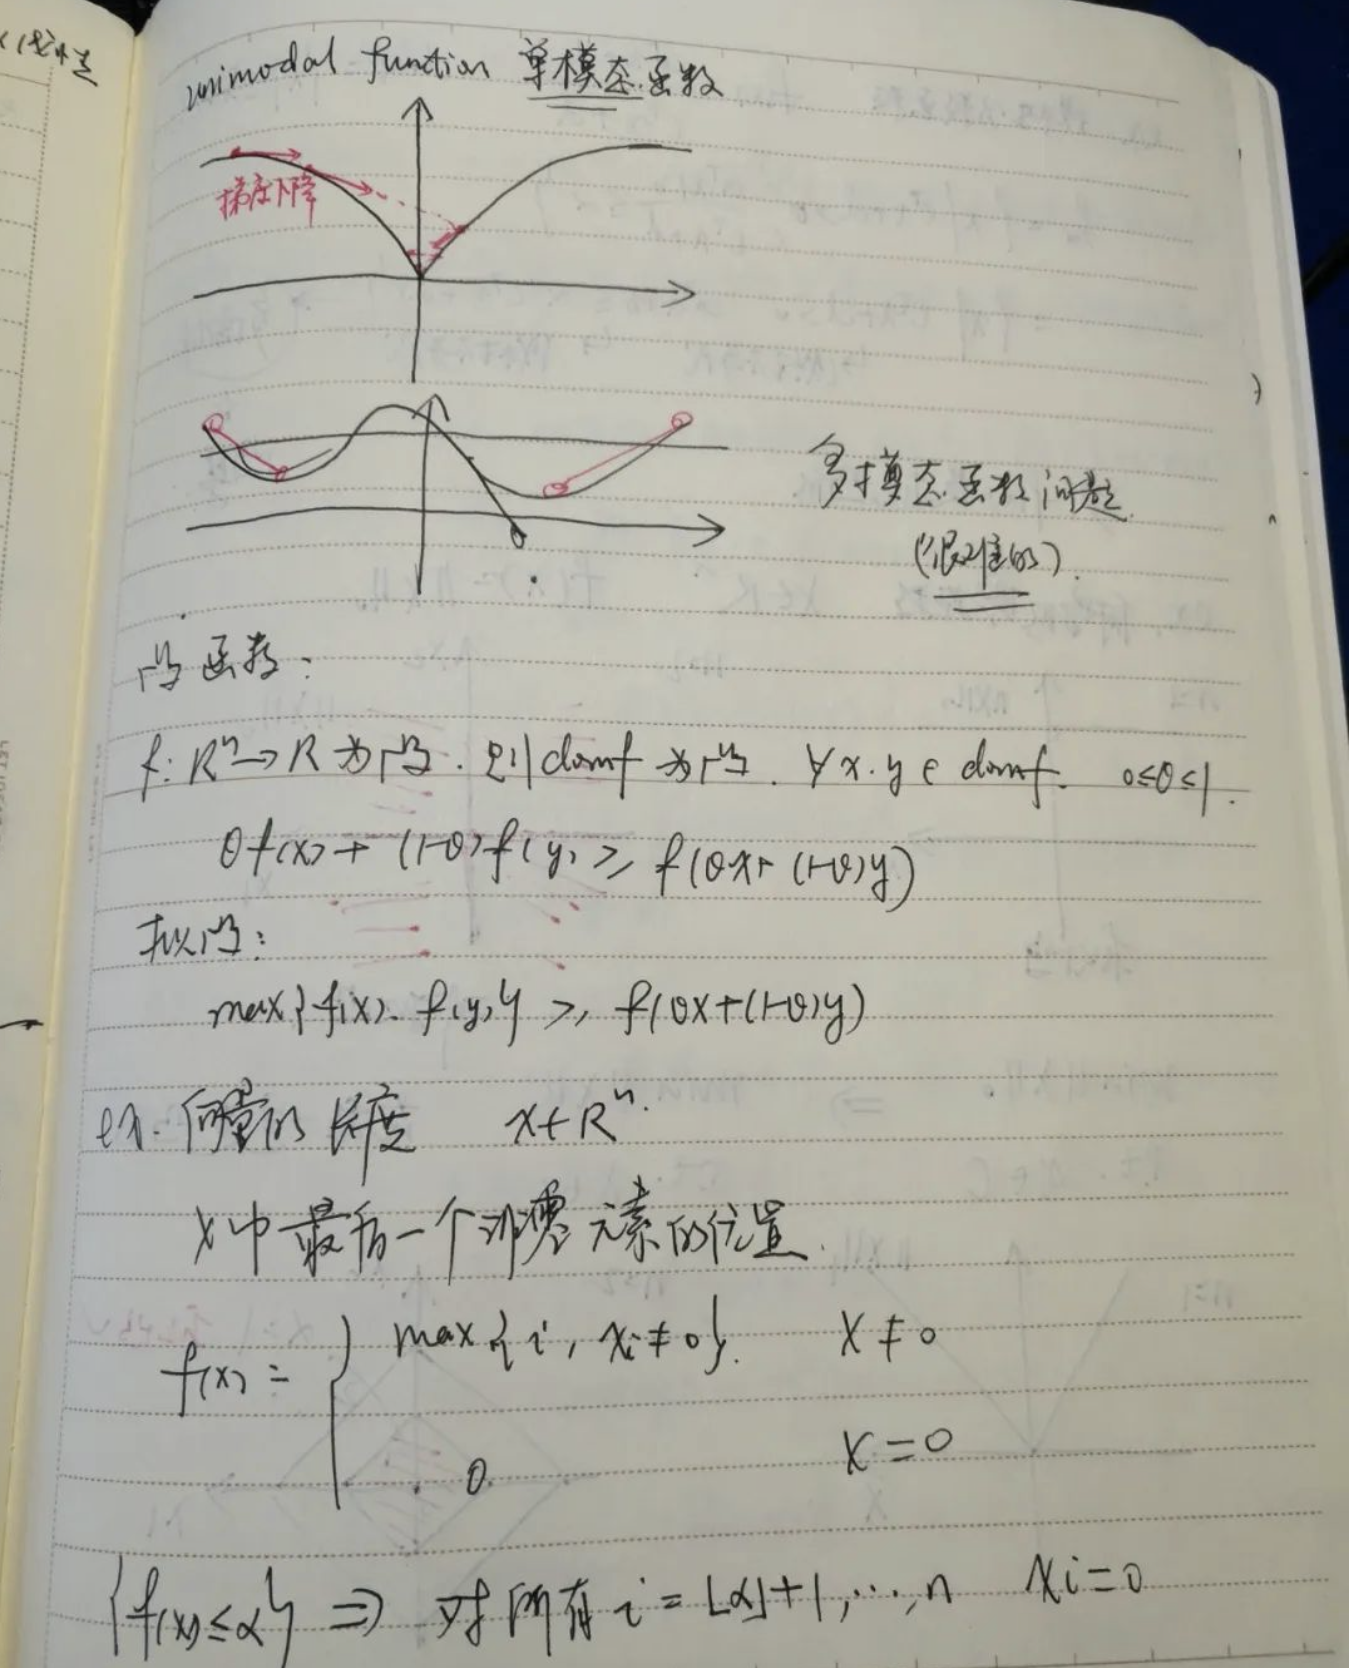 unimodal function 单模态函数
梯度下降
多模态函数问题
(很难的).
凸函数:
f: Rⁿ→R 为凸. 则 domf 为凸. ∀x.y∈domf. 0≤θ≤1.
θf(x)+(1-θ)f(y)≥f(θx+(1-θ)y)
拟凸:
max{f(x).f(y)}≥f(θx+(1-θ)y)
ex. 向量的长度 x∈Rⁿ.
x中最后一个非零元素的位置.
f(x)= { max{i, xi≠0}. x≠0
0. x=0
{f(x)≤α} ⇒ 对所有 i=⌊α⌋+1,…,n xi=0